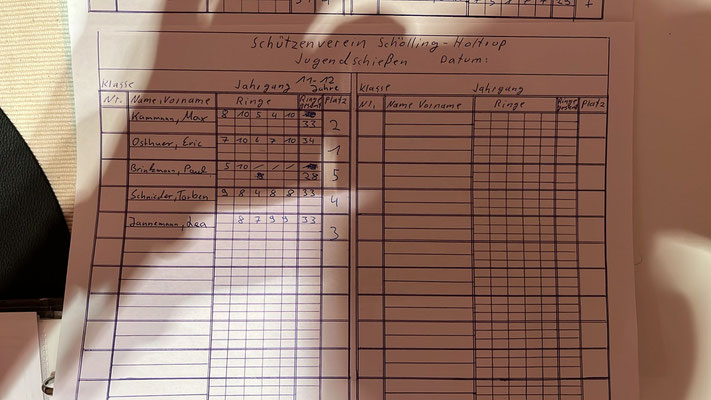 Schützenverein Schölling-Holtrup
Jugendschießen Datum:
Klasse Jahrgang 11-12 Jahre
Nr. Name, Vorname Ringe Ringe gesamt Platz
Kammann, Max 8 10 5 4 10 33 2
Osthues, Eric 7 10 6 7 10 34 1
Brinkmann, Paul 5 10 / / / 28 5
8
Schnieder, Torben 9 8 4 8 8 33 4
Jannemann, Lea 8 7 9 9 33 3
Klasse Jahrgang
Nr. Name Vorname Ringe Ringe gesamt Platz